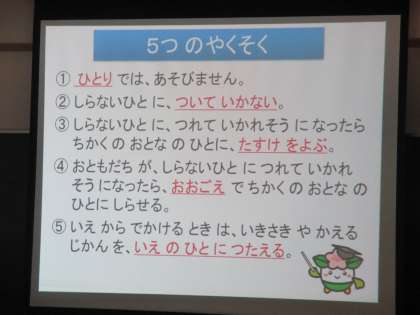 5つ のやくそく
① ひとり では、あそびません。
② しらないひと に、ついて いかない。
③ しらないひと に、つれて いかれそう に なったら
ちかく の おとな の ひとに、たすけ をよぶ。
④ おともだち が、しらないひと に つれて いかれ
そう になったら、おおごえ で ちかく の おとな の
ひとに しらせる。
⑤ いえ から でかける とき は、いきさき や かえる
じかん を、いえ の ひと に つたえる。